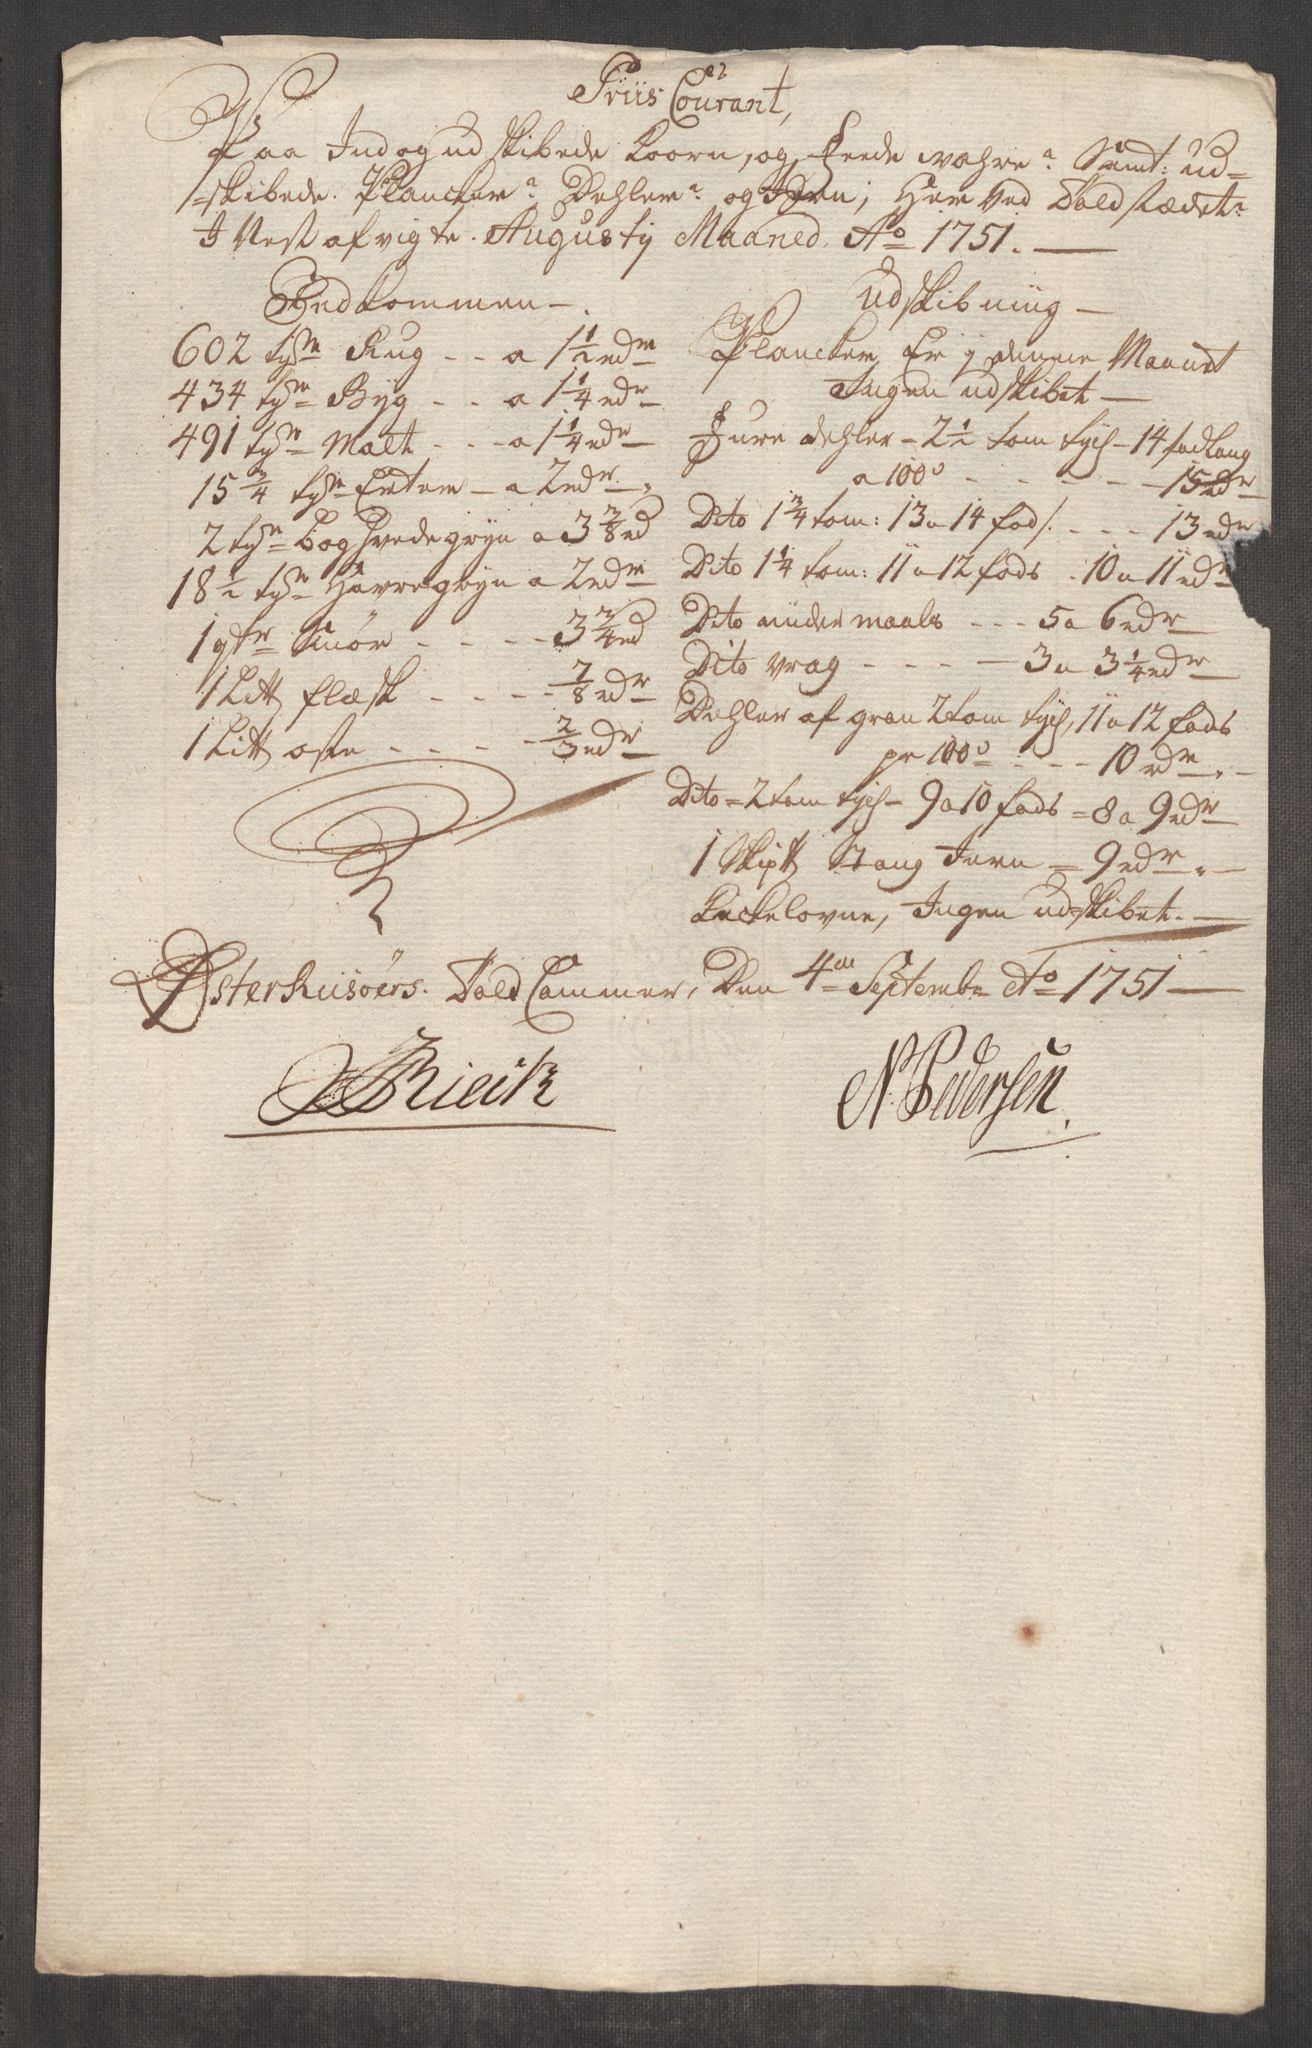 Priis Courant,
Paa Ind og ud skibede Koorn, og feede wahre Samt: ud=
=skibede Plancker Dehler og Jern; Her ved Toldstædet
I Nest afvigte Augusty Maaned, Ao 1751.
Indkommen
602 tdr Rug - - a 1 1/2 rdr
434 tdr Byg - - a 1 1/4 rdr
491 tdr Malt - - - a 1 1/4 rdr
15 3/4 tdr Erter - a 2 rdr
2 tdr boghvede gryn a 3 3/8 rd
18 1/2 tdr Havregryn a 2 rdr
1 qtr Smør - - - - 3 3/4 rd
1 Litt flæsk - - - - 7/8 rdr
1 Litt oste - - - - - 2/3 rdr
Udskibning
Plancker Er j denne Maanet
Ingen udskibet
Fure dehler - 2 1/2 tom tych - 14 fod lang
a 100 - - - - - 15 rdr
Dito 1 3/4 tom: 13 a 14 fod - - - 13 rdr
Dito 1 1/4 tom: 11 a 12 fods - 10 a 11 rdr
Dito under maals - - - 5 a 6 rdr
Dito vrag - - - - 3 a 3 1/4 rdr
Dehler af gran 2 tom tych, 11 a 12 fods
pr 100 - - - 10 rdr
Dito = 2 tom tych - 9 a 10 fods = 8 a 9 rdr
1 Skipt Stang Jern = 9 rdr
Kackelovne, Ingen udskibet.
Østerriisöers Told Cammer, Den 4 Septembr Ao 1751
N. Pedersen